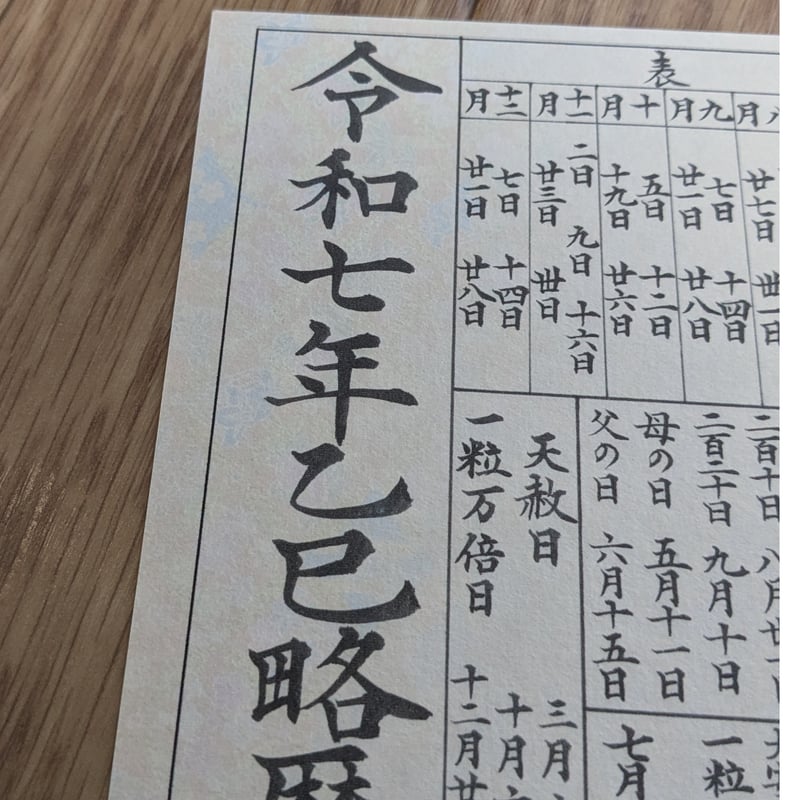 表
九月
七日 十四日
廿一日 廿八日
十月
五日 十二日
十九日 廿六日
十一月
二日 九日 十六日
廿三日 丗日
十二月
七日 十四日
廿一日 廿八日
二百十日
二百二十日 九月十日
母の日 五月十一日
父の日 六月十五日
一粒
七月
天赦日
一粒万倍日
三月
十月
十二月廿
令和七年乙巳略暦